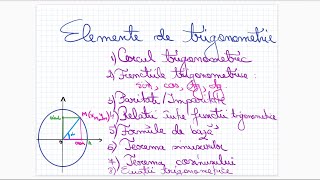 Elemente de trigonometrie
1) Cercul trigonometric
2) Funcțiile trigonometrice:
sin, cos, tg, ctg
3) Paritate / Imparitate
4) Relații între funcții trigonometrice
5) Formule de bază
6) Teorema sinusurilor
7) Teorema cosinusului
8) Ecuații trigonometrice